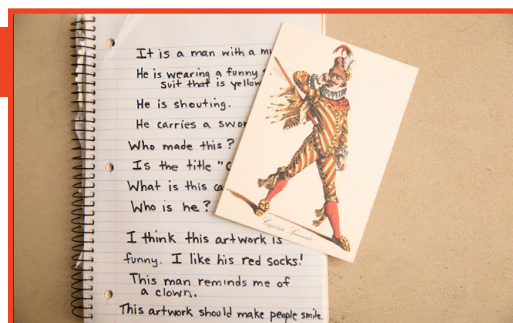 It is a man with a
He is wearing a funny
suit that is yellow
He is shouting.
He carries a
Who made this?
Is the title
What is this
Who is he?
I think this artwork is
funny. I like his red socks!
This man reminds me of
a clown.
This artwork should make people smile.